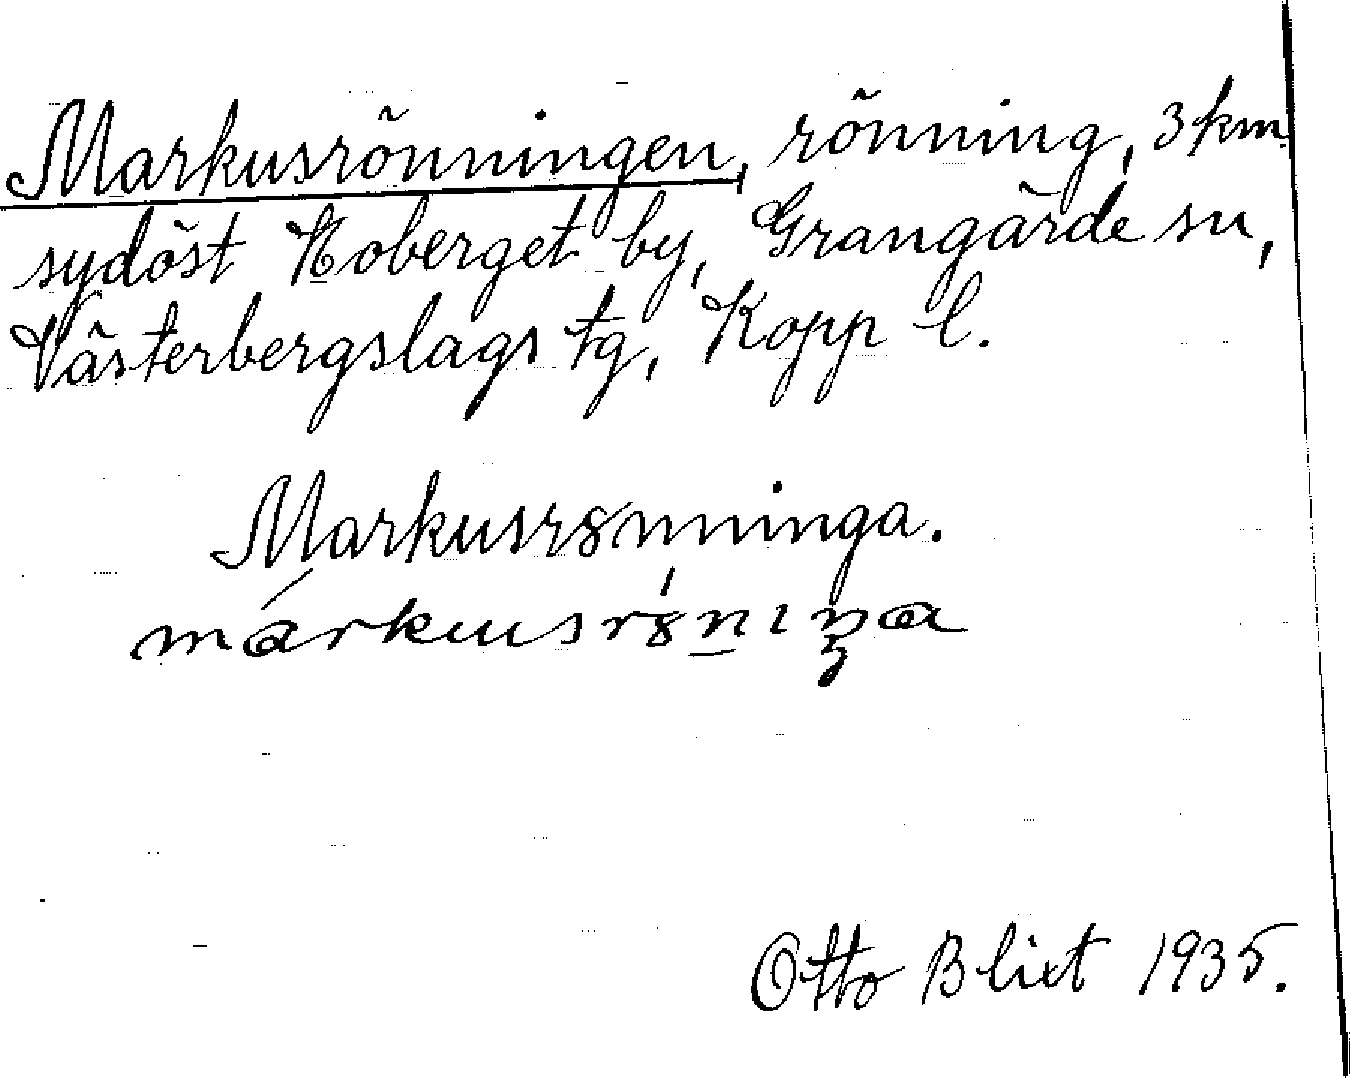 Markusrönningen, rönning, 3 km
sydöst Noberget by, Grangärde sn,
Västerbergslags tg, Kopp l.
Markusrȣnninga.
márkusrȣ́nıŋa
Otto Blixt 1935.